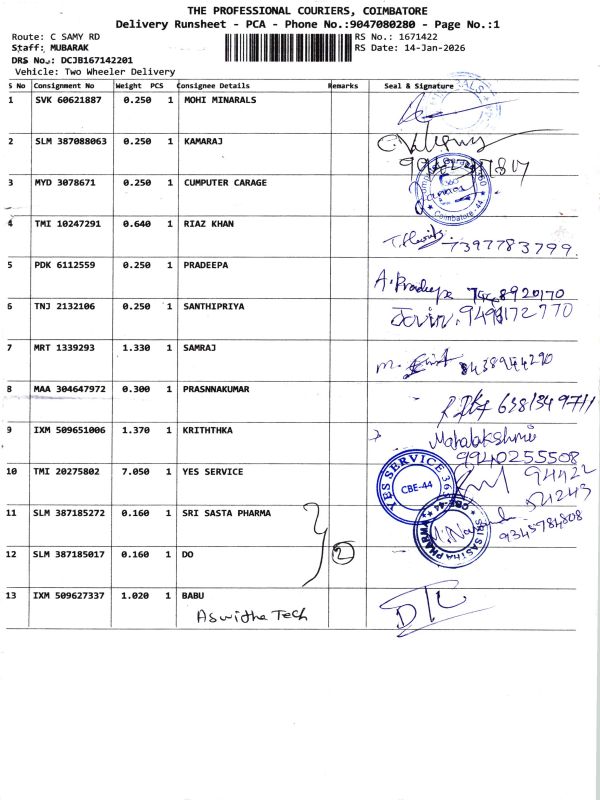 THE PROFESSIONAL COURIERS, COIMBATORE
Delivery Runsheet - PCA - Phone No.:9047080280 - Page No.:1
Route: C SAMY RD
RS No.: 1671422
Staff: MUBARAK
RS Date: 14-Jan-2026
DRS No.: DCJB167142201
Vehicle: Two Wheeler Delivery
S No Consignment No Weight PCS Consignee Details Remarks Seal & Signature
1 SVK 60621887 0.250 1 MOHI MINARALS
2 SLM 387088063 0.250 1 KAMARAJ
3 MYD 3078671 0.250 1 CUMPUTER CARAGE
Coimbatore-44
4 TMI 10247291 0.640 1 RIAZ KHAN
7397783799
5 PDK 6112559 0.250 1 PRADEEPA
A. Pradeepa 8920170
6 TNJ 2132106 0.250 1 SANTHIPRIYA
7 MRT 1339293 1.330 1 SAMRAJ
8 MAA 304647972 0.300 1 PRASNNAKUMAR
6381349711
9 IXM 509651006 1.370 1 KRITHTKA
Mahalakshmi
9940255508
10 TMI 20275802 7.050 1 YES SERVICE
YES SERVICE
CBE-44
94422
54243
11 SLM 387185272 0.160 1 SRI SASTA PHARMA
SRI SASTHA PHARMA
CBE-44
9345784808
12 SLM 387185017 0.160 1 DO
2
13 IXM 509627337 1.020 1 BABU
Aswitha Tech